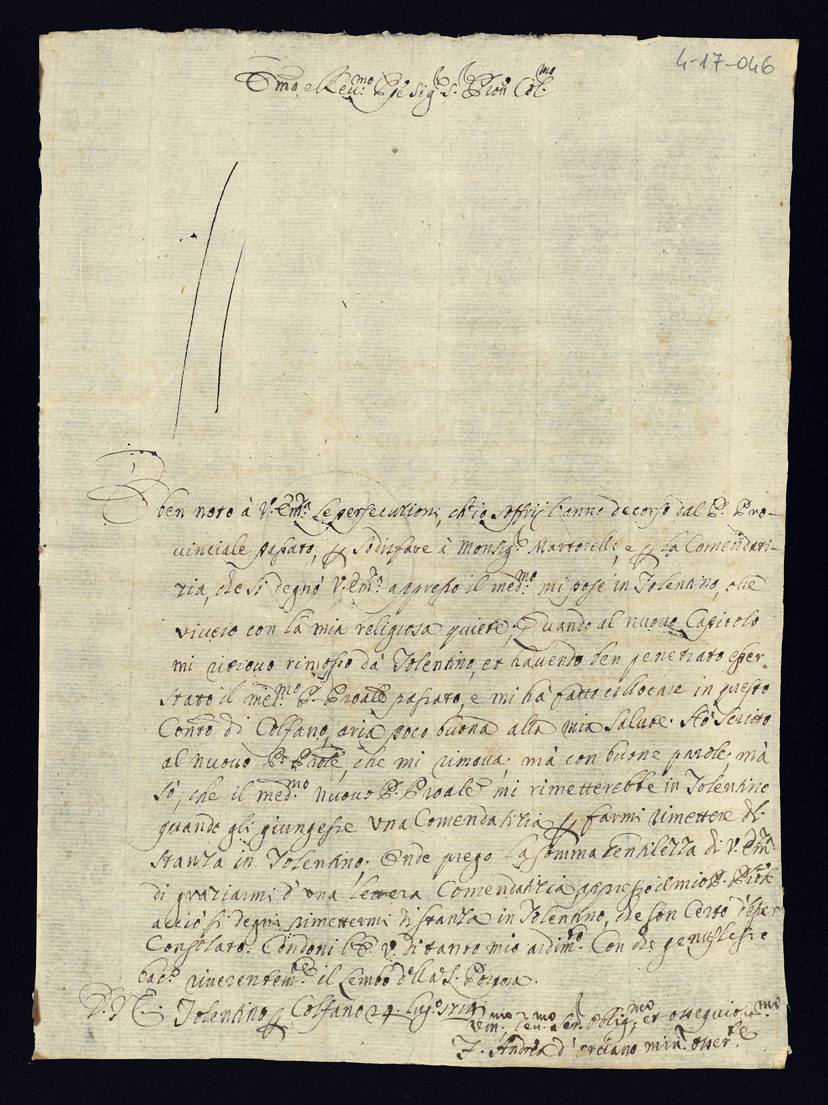 4-17-046
Emo, e Reu.mo Pre Sig.r S. Pron Col.mo
È ben noto à V. Em.a le persecutioni, ch'io soffrij l'anno decorso dal P. Pro-
uinciale passato, p sodisfare à Monsig.r Martorelli, e p la Comendati-
zia, che si degnò V. Em.a appresso il med.mo mi pose in Tolentino, oue
viueuo con la mia religiosa quiete, Quando al nuouo Capitolo
mi ritrouo rimosso dà Tolentino, et hauendo ben penetrato esser
stato il med.mo P. Proale passato, e mi hà fatto collocare in questo
Conto di Colfano, aria poco buona alla mia salute. Hò scritto
al nuouo P. Proale, che mi rimoua; mà con buone parole, mà
sò, che il med.mo nuouo P. Proale mi rimetterebbe in Tolentino
quando gli giungesse una Comendatizia p farmi rimettere di
stanza in Tolentino. Onde prego la somma gentilezza di V. Em.a
di graziarmi d'una lettera Comendatizia appresso il mio P. Proale
acciò si degni rimettermi di stanza in Tolentino, che son certo d'esser
Consolato. Condoni l'E. V. di tanto mio ardim.to Con che genuflesso
bacio riuerentem.te il Lembo della S. Porpora.
D. V. E. Tolentino p Colfano 24. Lug.o
Vm.mo Deu.mo Ser. Oblig.mo et osseguios.mo
F. Andrea d'Orciano min.r Osser.te